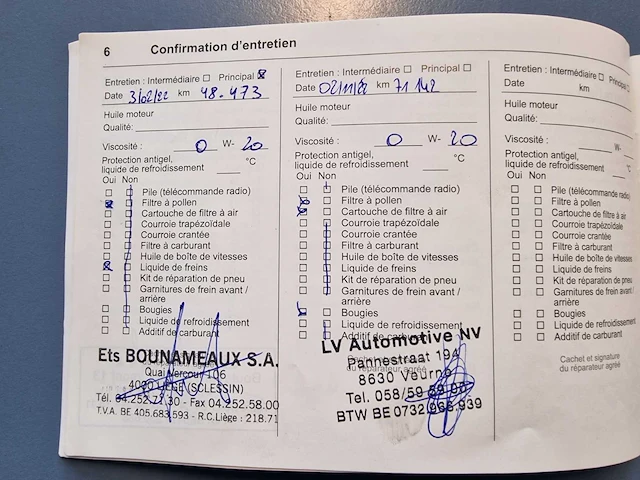 6 Confirmation d'entretien
Entretien : Intermédiaire Principal
Date 3/02/22 km 48.473
Huile moteur
Qualité:
Viscosité : 0 W- 20
Protection antigel,
liquide de refroidissement °C
Oui Non
Pile (télécommande radio)
Filtre à pollen
Cartouche de filtre à air
Courroie trapézoïdale
Courroie crantée
Filtre à carburant
Huile de boîte de vitesses
Liquide de freins
Kit de réparation de pneu
Garnitures de frein avant /
arrière
Bougies
Liquide de refroidissement
Additif de carburant
Ets BOUNAMEAUX S.A.
Quai Vercour 106
4020 LIEGE (SCLESSIN)
Tél. 04.252.71.30 - Fax 04.252.58.00
T.V.A. BE 405.683.593 - R.C.Liège : 218.71
Entretien : Intermédiaire Principal
Date 02/11/22 km 71 142
Huile moteur
Qualité:
Viscosité: 0 W- 20
Protection antigel,
liquide de refroidissement °C
Oui Non
Pile (télécommande radio)
Filtre à pollen
Cartouche de filtre à air
Courroie trapézoïdale
Courroie crantée
Filtre à carburant
Huile de boîte de vitesses
Liquide de freins
Kit de réparation de pneu
Garnitures de frein avant /
arrière
Bougies
Liquide de refroidissement
Additif de carburant
LV Automotive NV
Pannestraat 194
8630 Veurne
Tel. 058/
BTW BE 0732.966.939
Entretien : Intermédiaire Principal
Date km
Huile moteur
Qualité:
Viscosité : W-
Protection antigel,
liquide de refroidissement
Oui Non
Pile (télécommande radio)
Filtre à pollen
Cartouche de filtre à air
Courroie trapézoïdale
Courroie crantée
Filtre à carburant
Huile de boîte de vitesses
Liquide de freins
Kit de réparation de pneu
Garnitures de frein avant /
arrière
Bougies
Liquide de refroidissement
Additif de carburant
Cachet et signature
du réparateur agréé